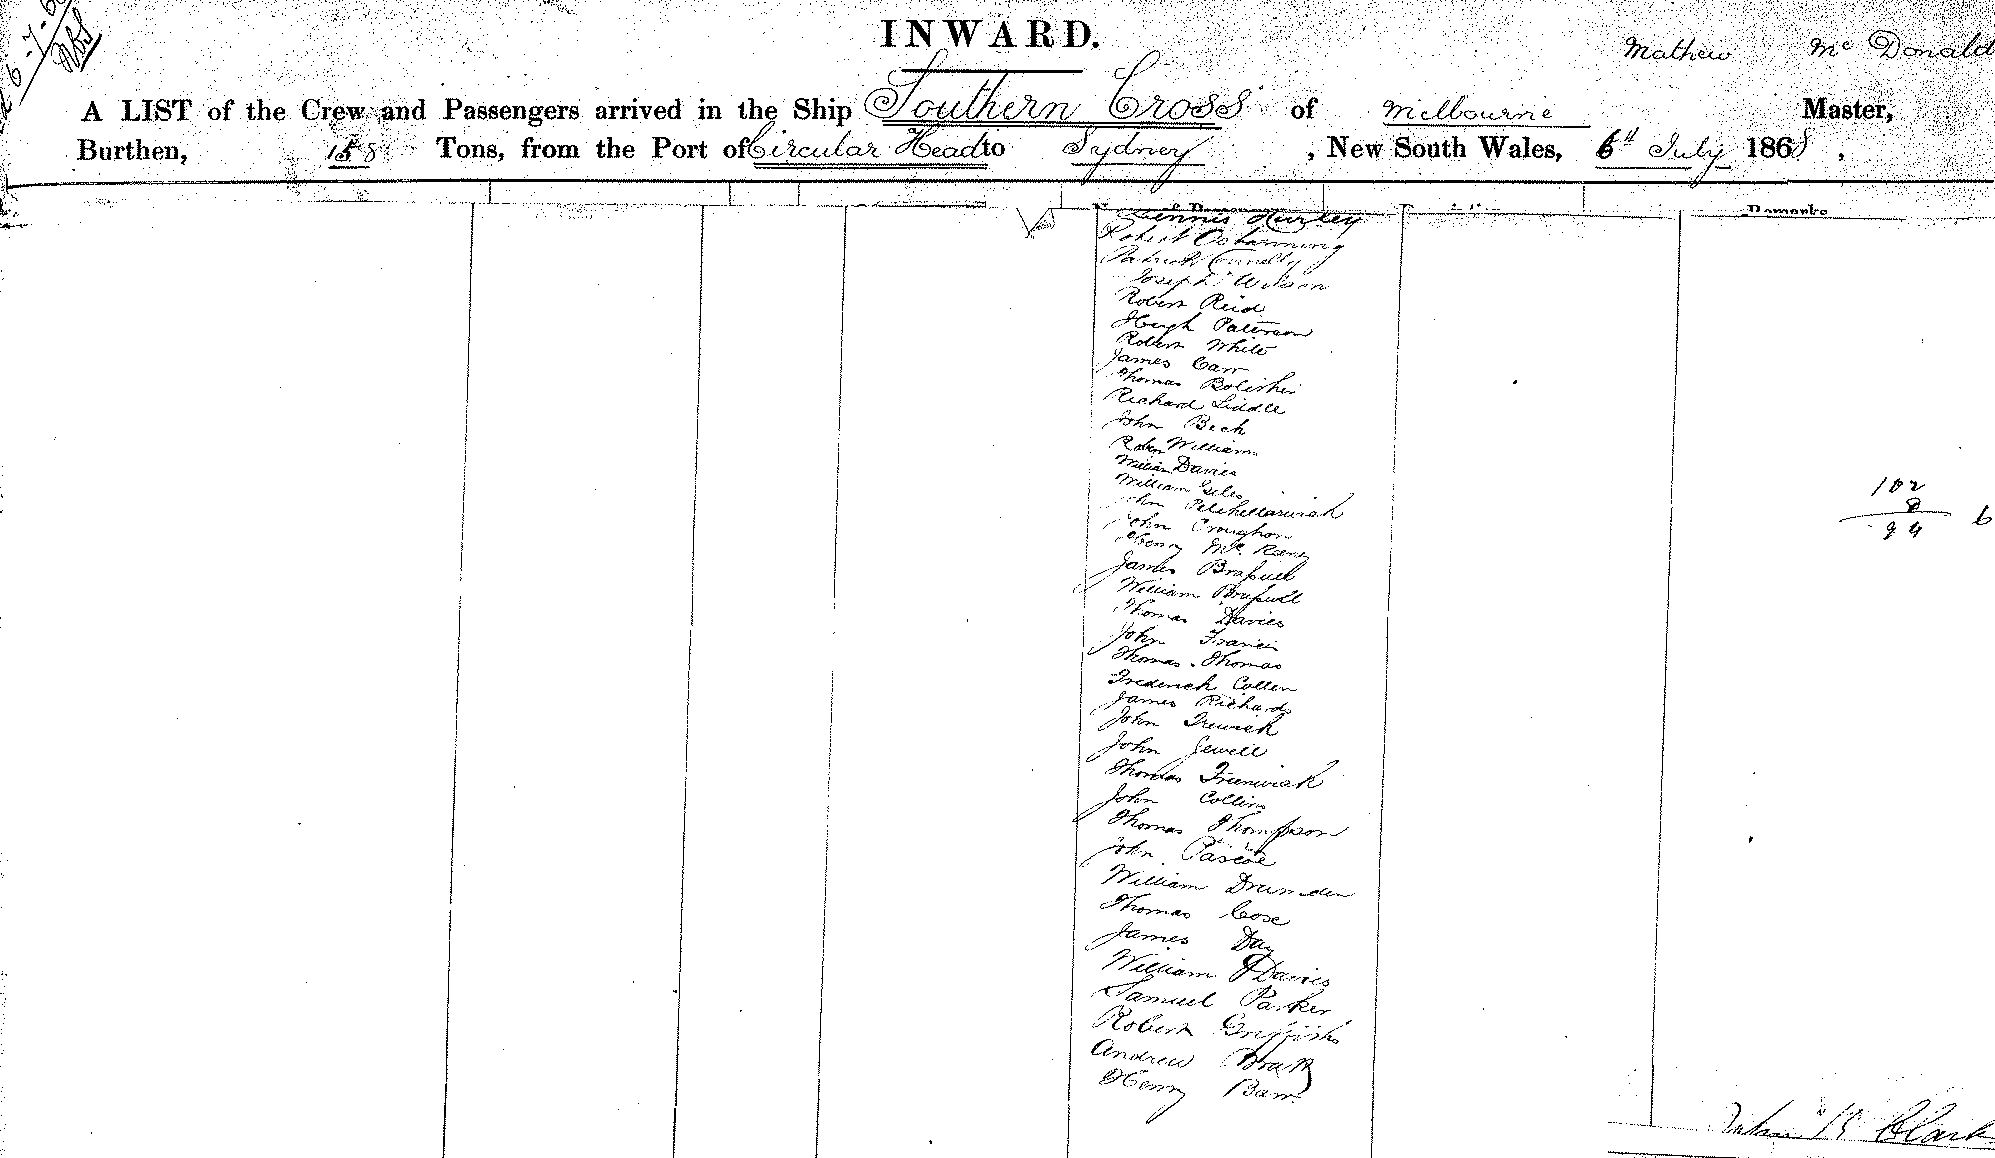 INWARD.
Mathew Mc Donald
A LIST of the Crew and Passengers arrived in the Ship Southern Cross of Melbourne Master,
Burthen, 158 Tons, from the Port of Circular Head to Sydney, New South Wales, 6th July 1868,
Remarks
Dennis Hurley
Robert
Patrick Connelly
Joseph Wilson
Robert Reid
Hugh Paterson
Robert White
James Carr
Thomas
Richard Liddle
John Beck
William
William Davies
William Giles
John
John Croughan
Henry Mc
James Braswell
William Braswell
Thomas Davies
John Francis
Thomas Thomas
Frederick Collen
James Richards
John Trewick
John Jewell
Thomas
John Collins
Thomas Thompson
John Pascoe
William
Thomas Cose
James Day
William Davies
Samuel Parker
Robert Griffiths
Andrew
Henry Barr
102
8
94 6
Clark